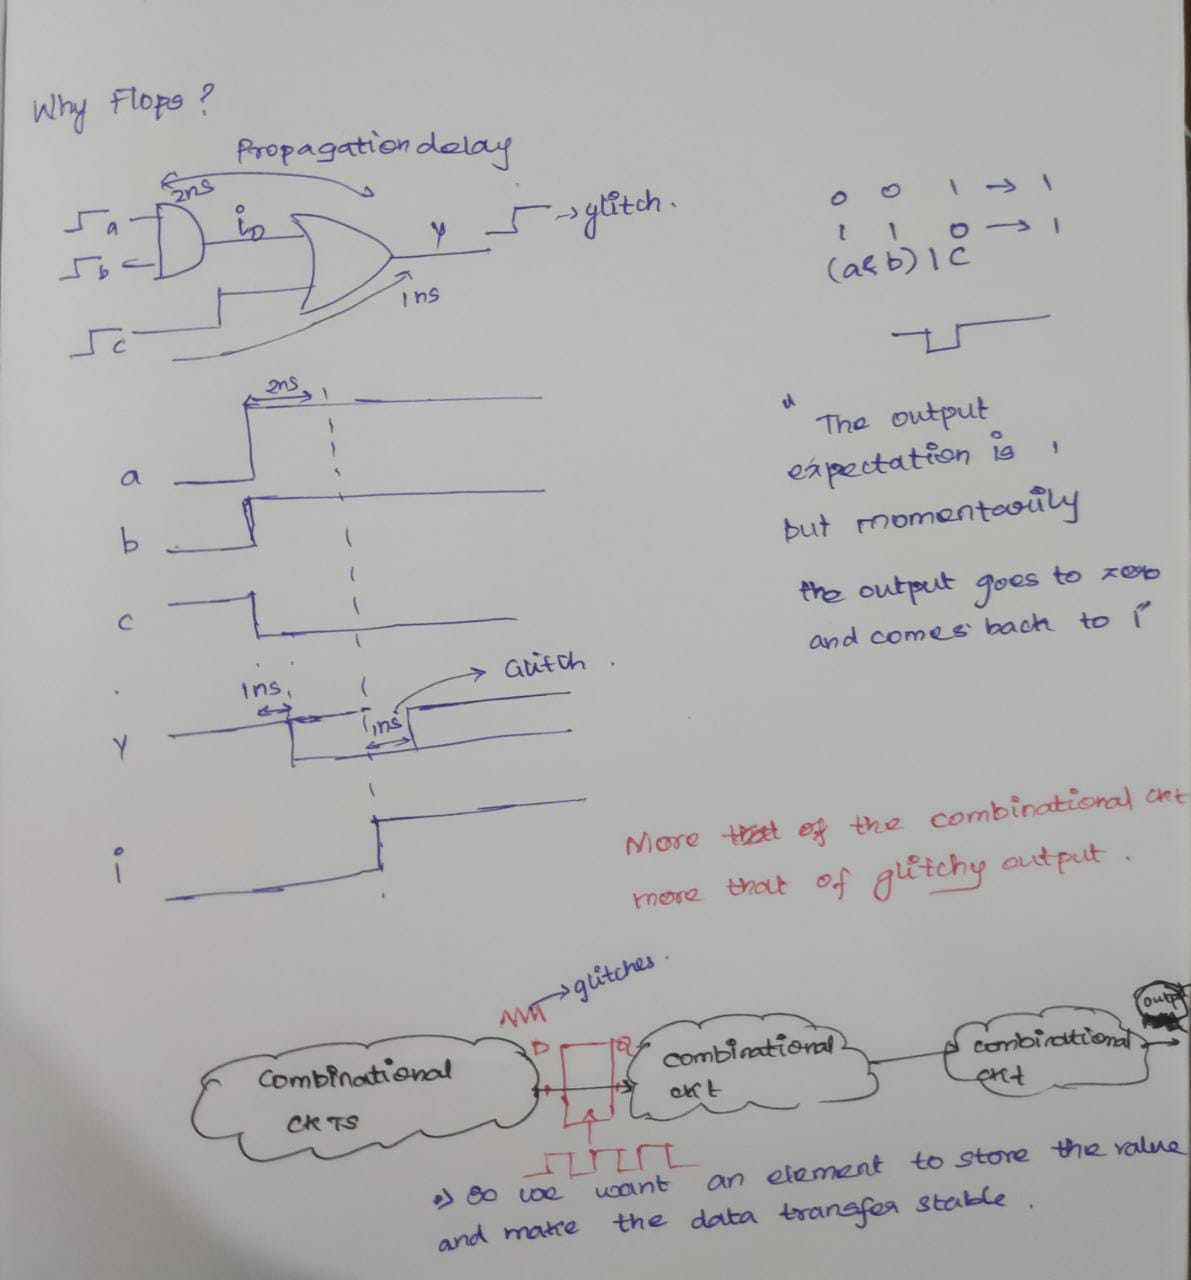 Why Flops?
Propagation delay
2ns
a
i0
y
→ glitch.
b
1ns
c
0 0 1 → 1
1 1 0 → 1
(a&b) | C
2ns
a
b
c
1ns
Glitch.
y
1ns
i
" The output
expectation is 1
but momentarily
the output goes to zero
and comes back to 1"
More of the combinational ckt
more that of glitchy output.
→ glitches.
D
Q
Combinational
CKTS
combinational
ckt
combinational
ckt
So we want an element to store the value
and make the data transfer stable.